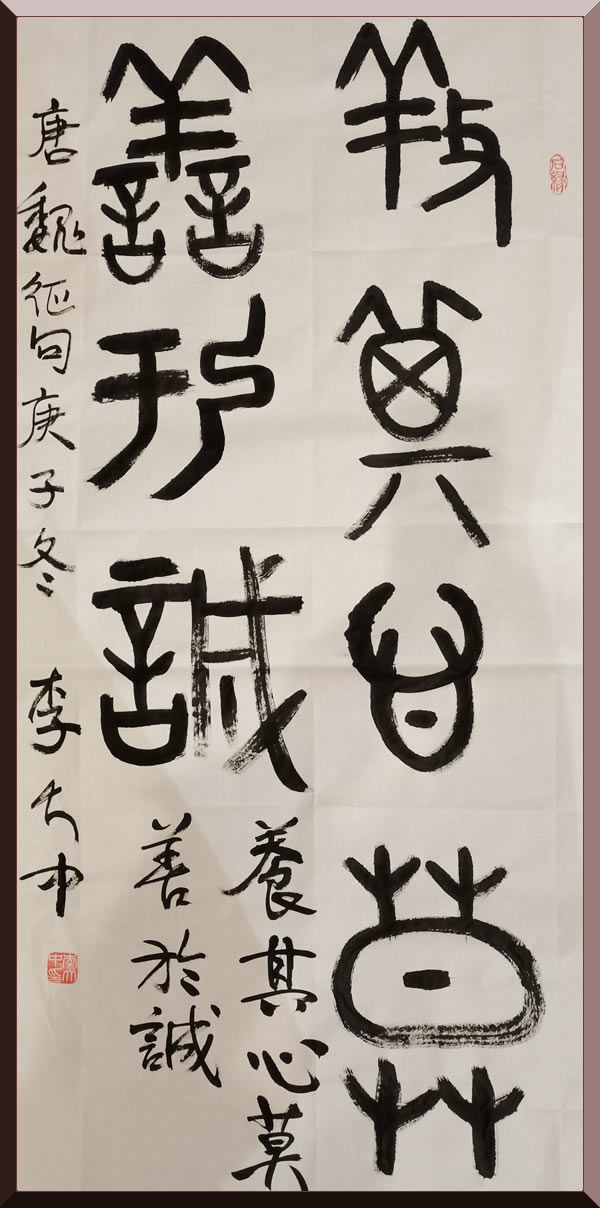 養其心莫
善於誠
養其心莫
善於誠
唐魏征句庚子冬 李大中